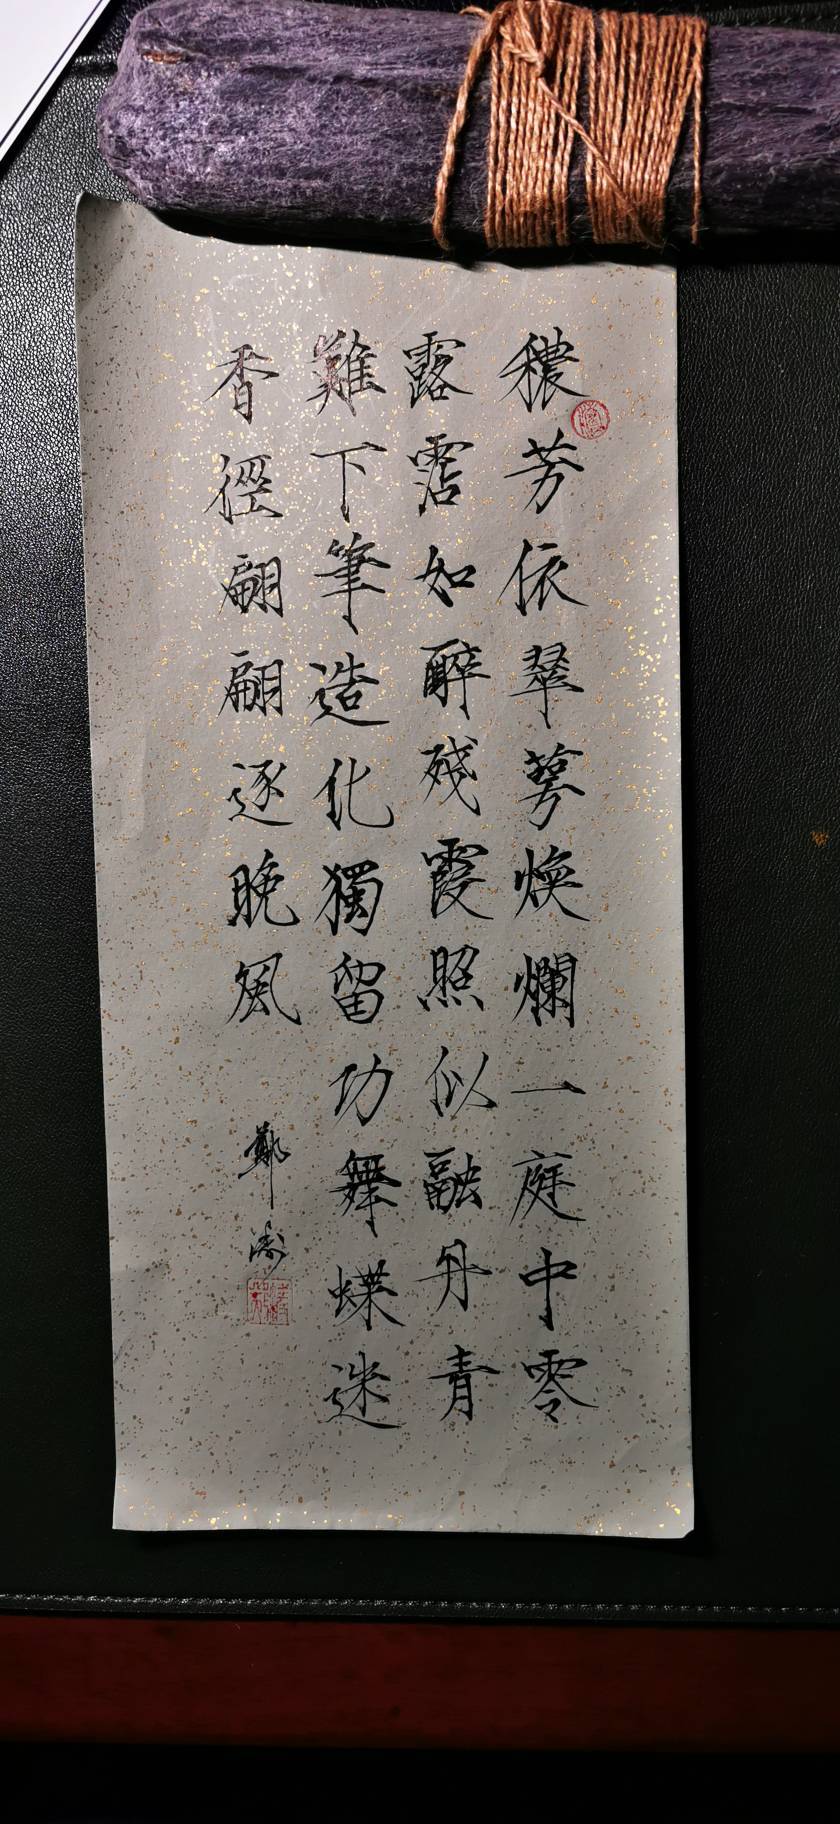 穠芳依翠萼煥爛一庭中零
露霑如醉殘霞照似融丹青
難下筆造化獨留功舞蝶迷
香徑翩翩逐晚風
鄭濤